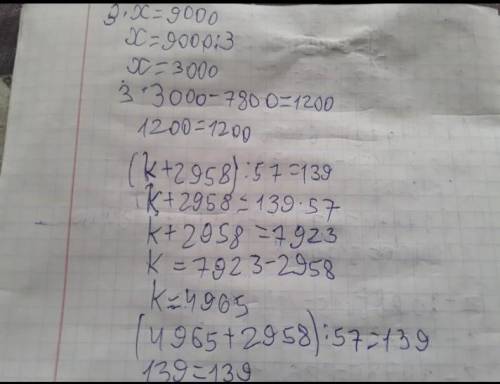 3·x=9000
x=9000:3
x=3000
3·3000-7800=1200
1200=1200
(k+2958):57=139
k+2958=139·57
k+2958=7923
k=7923-2958
k=4965
(4965+2958):57=139
139=139